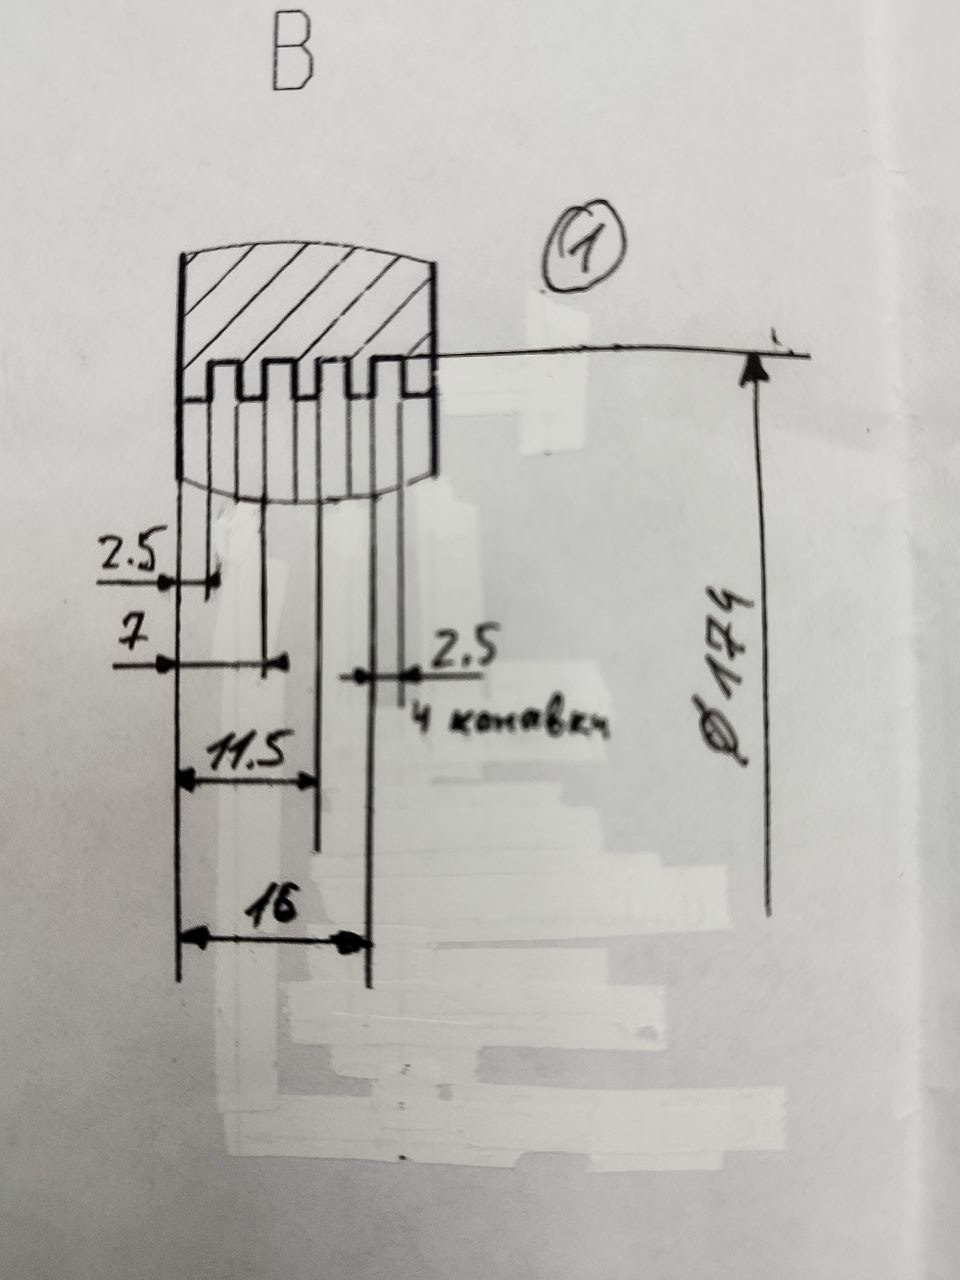 В
1
2.5
7
2.5
4 конавки
11.5
16
Ø174